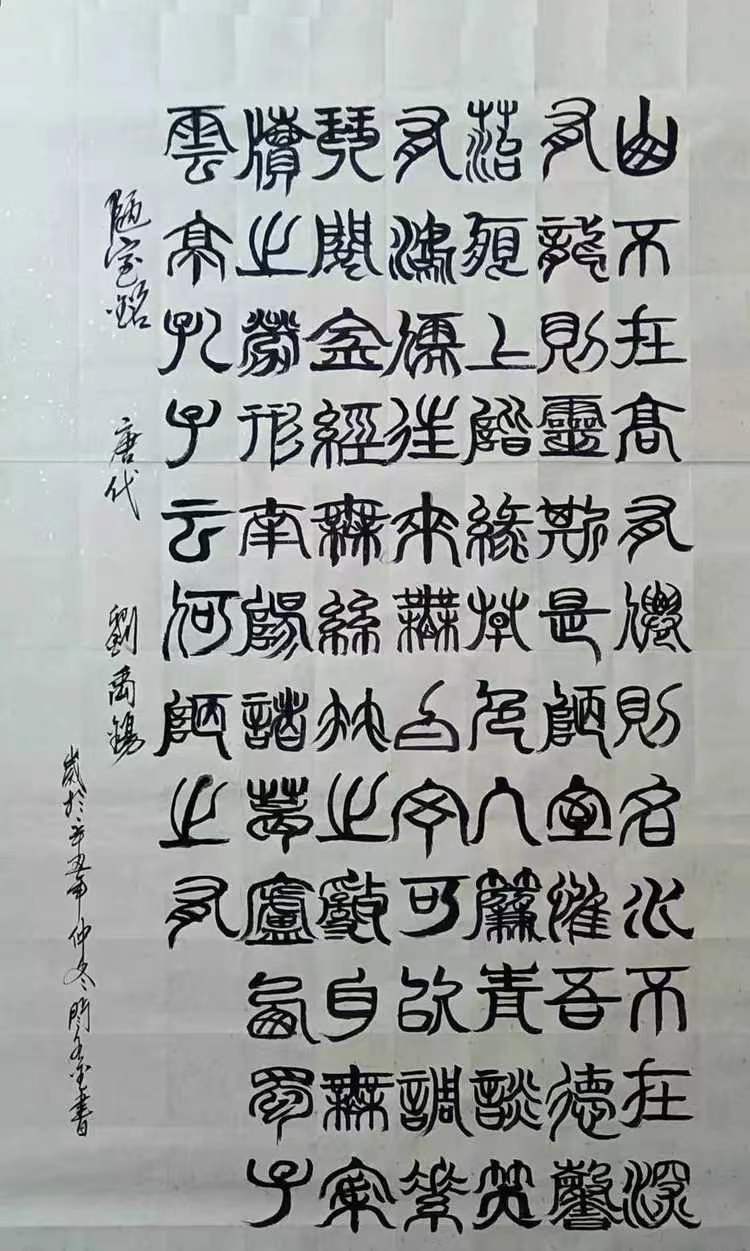 山不在高有僊則名水不在深
有龍則靈斯是陋室惟吾德馨
苔痕上階綠草色入簾青談笑
有鴻儒往來無白丁可以調素
琴閱金經無絲竹之亂耳無案
牘之勞形南陽諸葛廬西蜀子
雲亭孔子云何陋之有
陋室銘 唐代 劉禹錫
歲於辛丑年仲冬 書